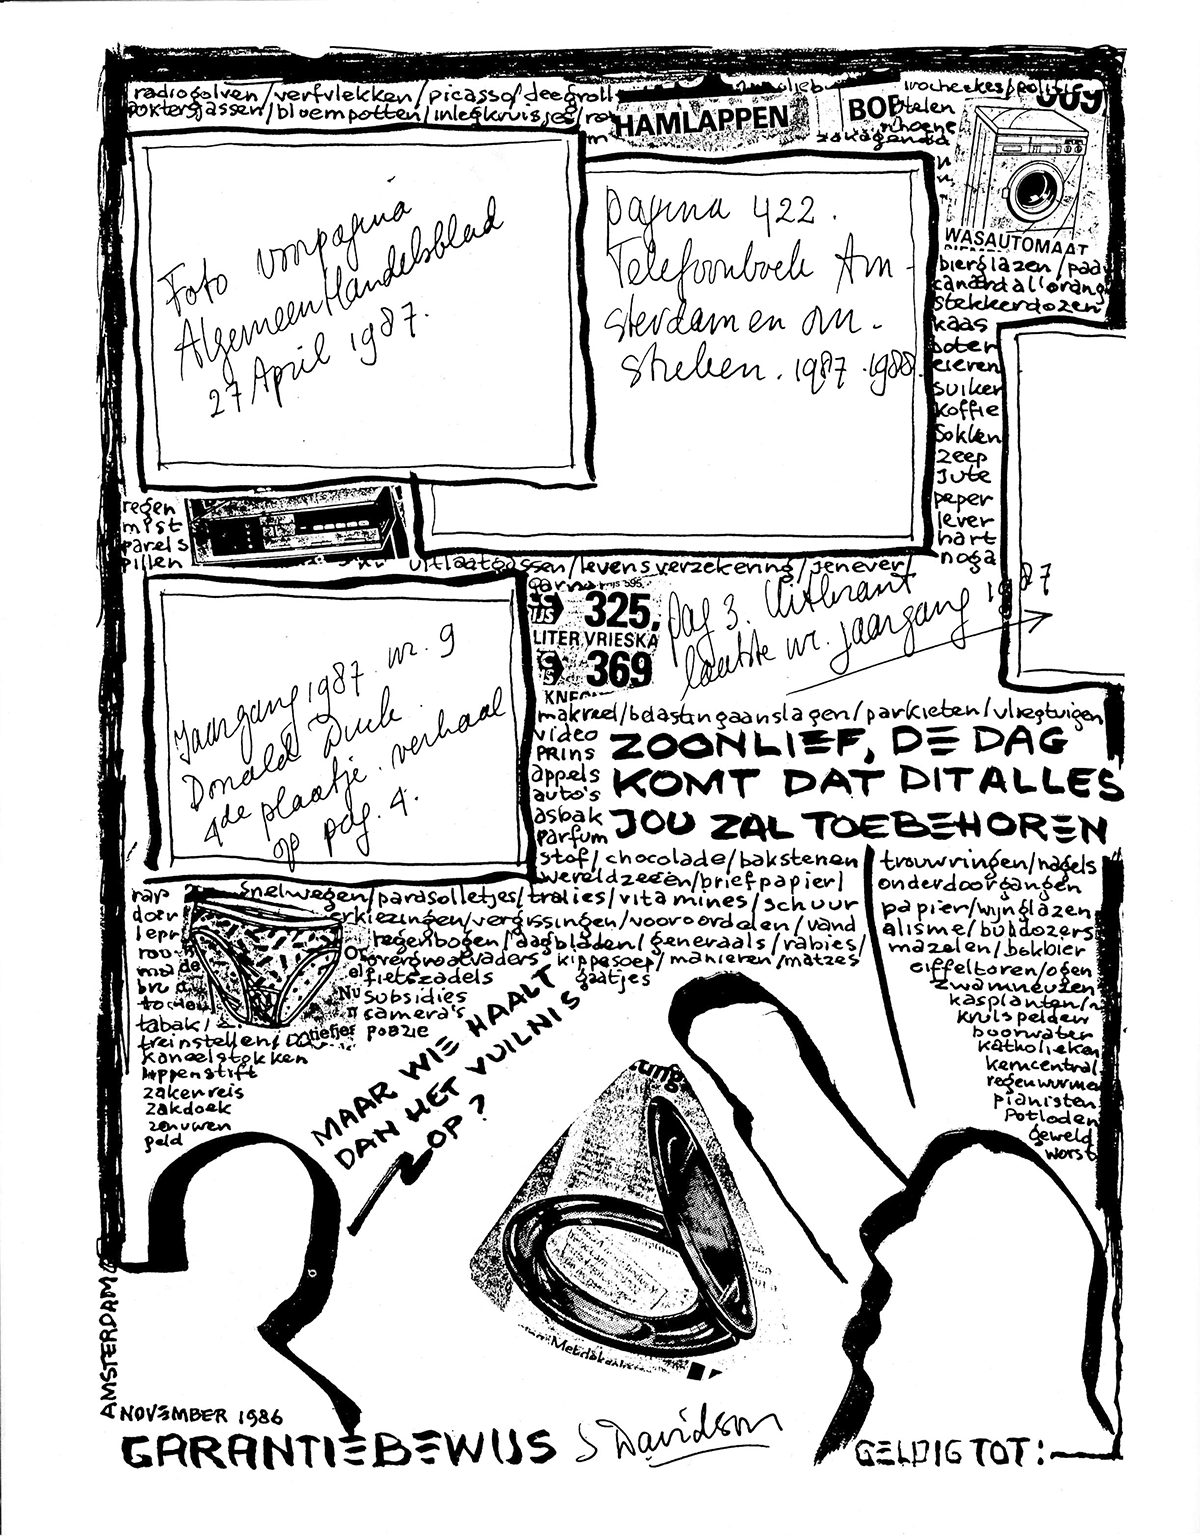 radiogolven/verfvlekken/picasso/deegroll
doktersjassen/bloempotten/inlegkruisjes/ro
HAMLAPPEN
BOE
stelen
schoene
zakagenda
WASAUTOMAAT
Foto voorpagina
Algemeen Handelsblad
27 April 1987.
pagina 422.
Telefoonboek Am-
sterdam en om-
streken. 1987-1988
bierglazen/paa
canard a l'orang
stekkerdozen
kaas
boter
eieren
suiker
koffie
Sokken
zeep
Jute
peper
lever
hart
noga
regen
mist
parels
pillen
uitlaatgassen/levensverzekering/jenever/
325,
LITER VRIESKA
369
pag 3. Uitkrant
laatste nr. jaargang 1987
Jaargang 1987 nr. 9
Donald Duck.
4de plaatje. verhaal
op pag. 4.
makreel/belastingaanslagen/parkieten/vliegtuigen
video
PRINS
appels
auto's
asbak
parfum
ZOONLIEF, DE DAG
KOMT DAT DIT ALLES
JOU ZAL TOEBEHOREN
stof/chocolade/bakstenen
wereldzeeën/briefpapier/
snelwegen/parasolletjes/tralies/vitamines/schuur
erkiezingen/vergissingen/vooroordelen/vand
regenbogen/dagbladen/generaals/rabies/
overgrootvaders kippesoep/manieren/matzes
fietszadels gaatjes
subsidies
camera's
poëzie
trouwringen/nagels
onderdoorgangen
papier/wijnglazen
alisme/buldozers
mazelen/bokbier
eiffeltoren/ogen
zwamneuzen
kasplanten/n
krulspelden
boorwater
katholieken
kerncentral
regenwurme
pianisten
potloden
geweld
worst
tabak/
treinstellen/
kaneelstokken
lippenstift
zakenreis
zakdoek
zenuwen
geld
MAAR WIE HAALT
DAN HET VUILNIS
OP?
AMSTERDAM
NOVEMBER 1986
GARANTIEBEWIJS
S Davidson
GELDIG TOT: